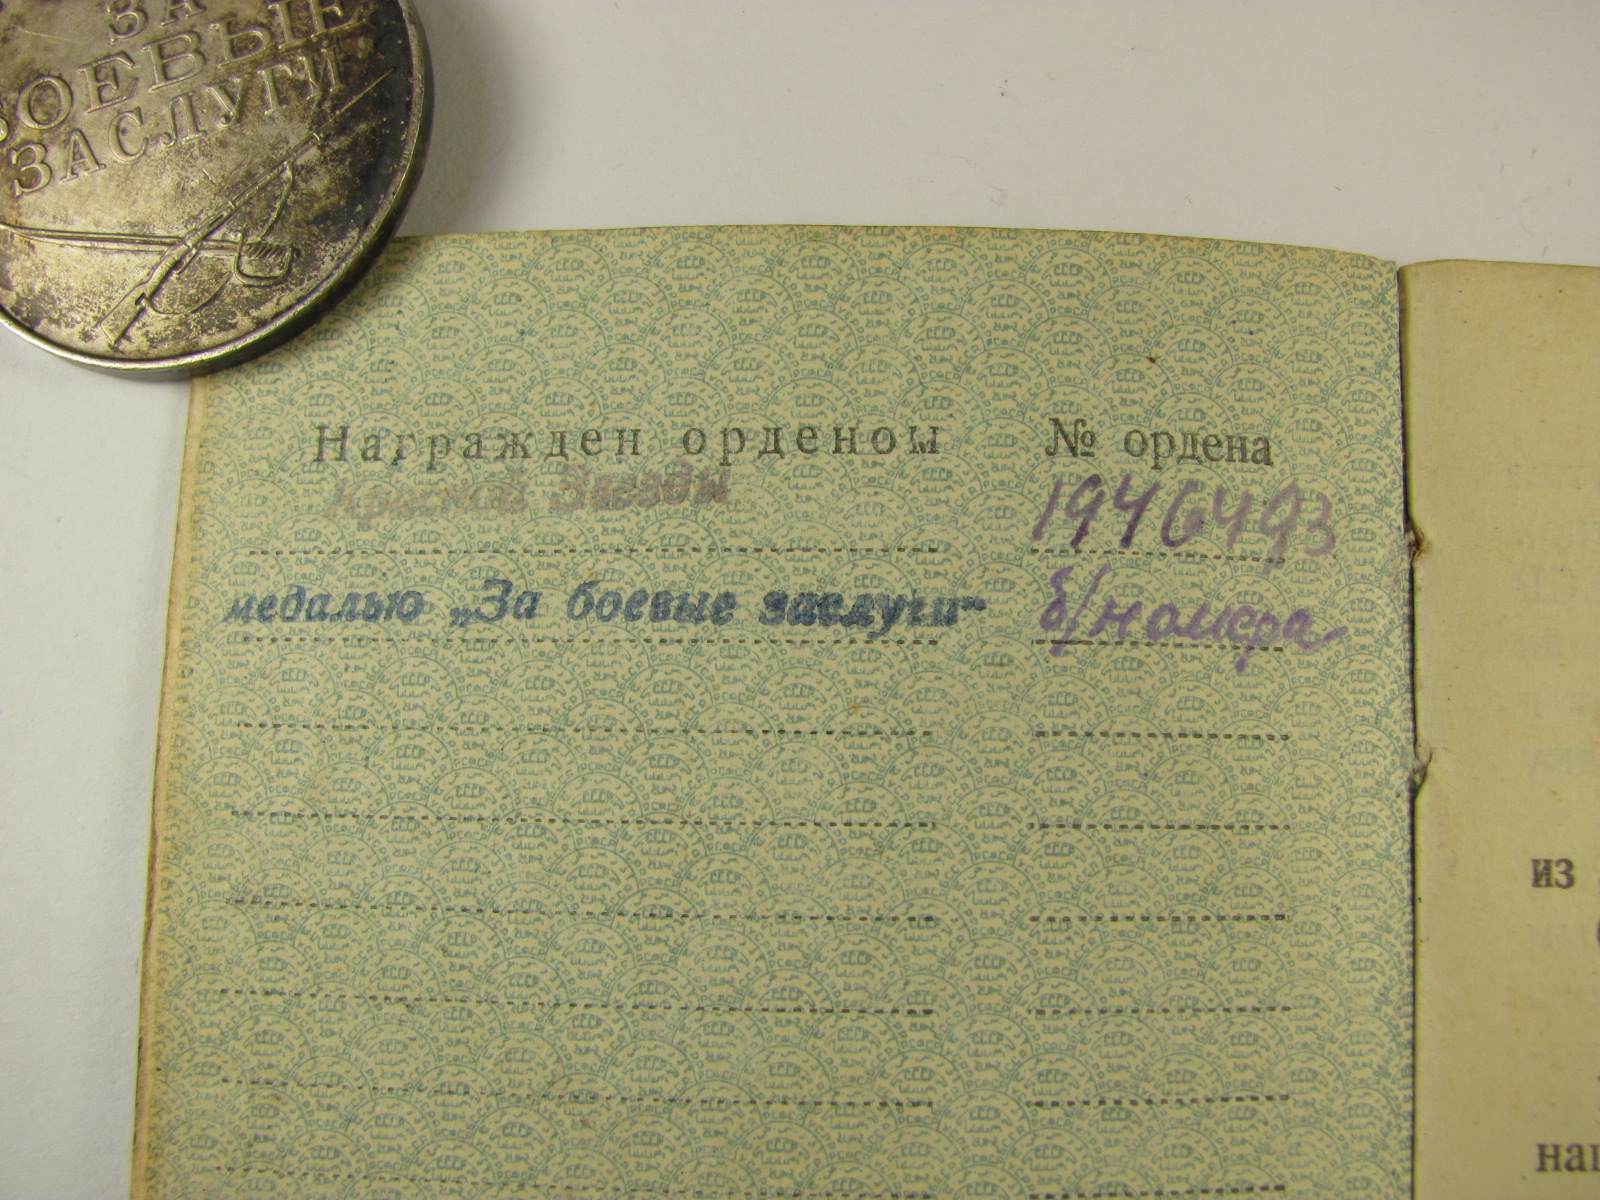 ЗА
БОЕВЫЕ
ЗАСЛУГИ
Награжден орденом № ордена
Красной Звезды 1946493
медалью „За боевые заслуги“ б/номера
из
наг